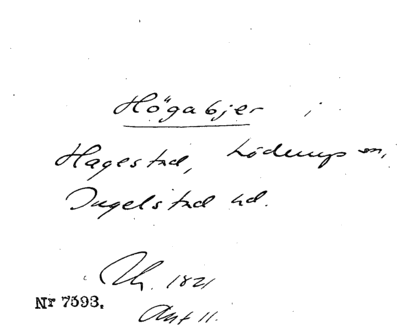 Högabjer i
Hagestad, Löderup sn,
Ingelstad hd.
Th. 1821
Nr 7593.
Ant 11.